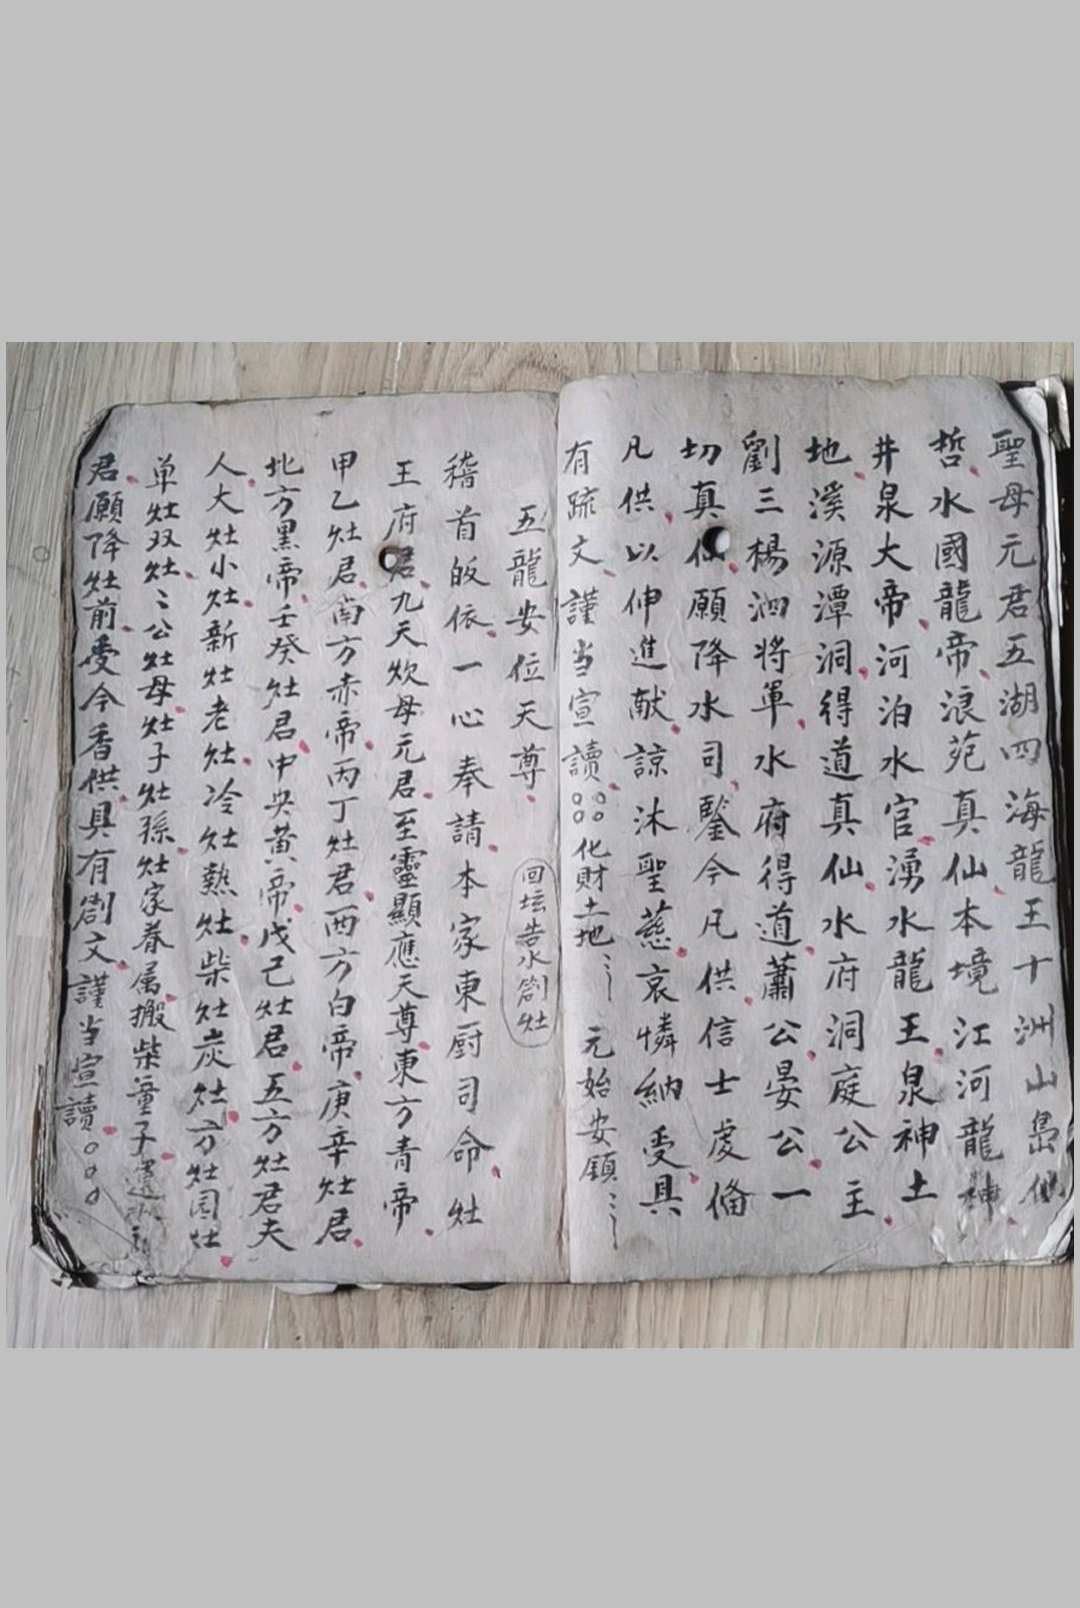 聖母元君五湖四海龍王十洲山島仙
哲水國龍帝浪苑真仙本境江河龍神
井泉大帝河泊水官湧水龍王泉神土
地溪源潭洞得道真仙水府洞庭公主
劉三楊泗將軍水府得道蕭公晏公一
切真仙願降水司鑒今凡供信士虔備
凡供以伸進献諒沐聖慈哀憐納受具
有疏文謹当宣讀。。。。化財土地⋮ 元始安鎮⋮
五龍安位天尊
回坛告水劄灶
稽首皈依一心奉請本家東厨司命灶
王府君九天炊母元君至靈顯應天尊東方青帝
甲乙灶君南方赤帝丙丁灶君西方白帝庚辛灶君
北方黑帝壬癸灶君中央黄帝戊己灶君五方灶君夫
人大灶小灶新灶老灶冷灶熱灶柴灶炭灶方灶园灶
单灶双灶⺀公灶母灶子灶孫灶家眷属搬柴童子運水
君願降灶前受今香供具有劄文謹当宣讀。。。